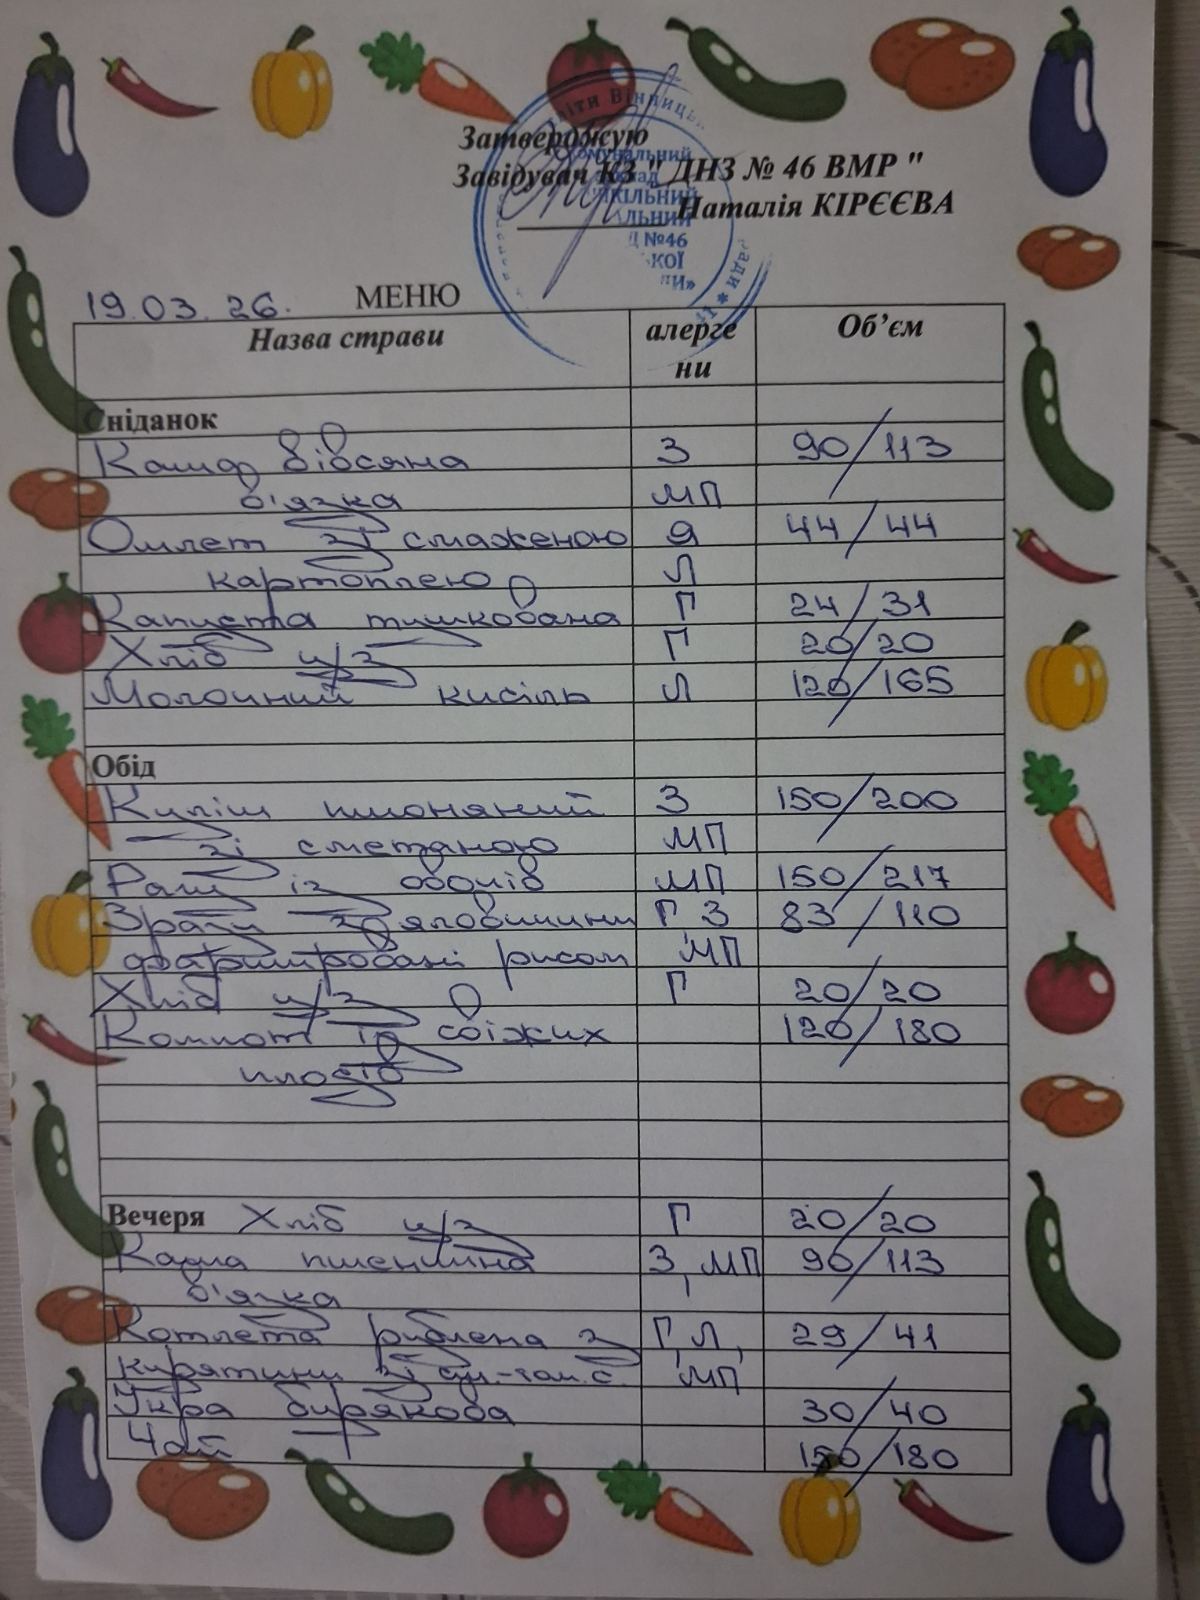 Затверджую
Завідувач КЗ " ДНЗ № 46 ВМР "
Наталія КІРЄЄВА
19.03.26. МЕНЮ
Назва страви алерге ни Об'єм
Сніданок
Каша вівсяна З 90/113
в'язка МП
Омлет зі смаженою Я 44/44
картоплею Л
Капуста тушкована Г 24/31
Хліб ц/з Г 20/20
Молочний кисіль Л 120/165
Обід
Куліш пшоняний З 150/200
зі сметаною МП
Рагу із овочів МП 150/217
Зрази з яловичини Г З 83/110
фаршировані рисом МП
Хліб ц/з Г 20/20
Компот із свіжих 120/180
плодів
Вечеря Хліб ц/з Г 20/20
Каша пшенична З, МП 90/113
в'язка
Котлета рублена з Г, Л, 29/41
курятини зі см.-том.с. МП
Ікра бурякова 30/40
Чай 150/180